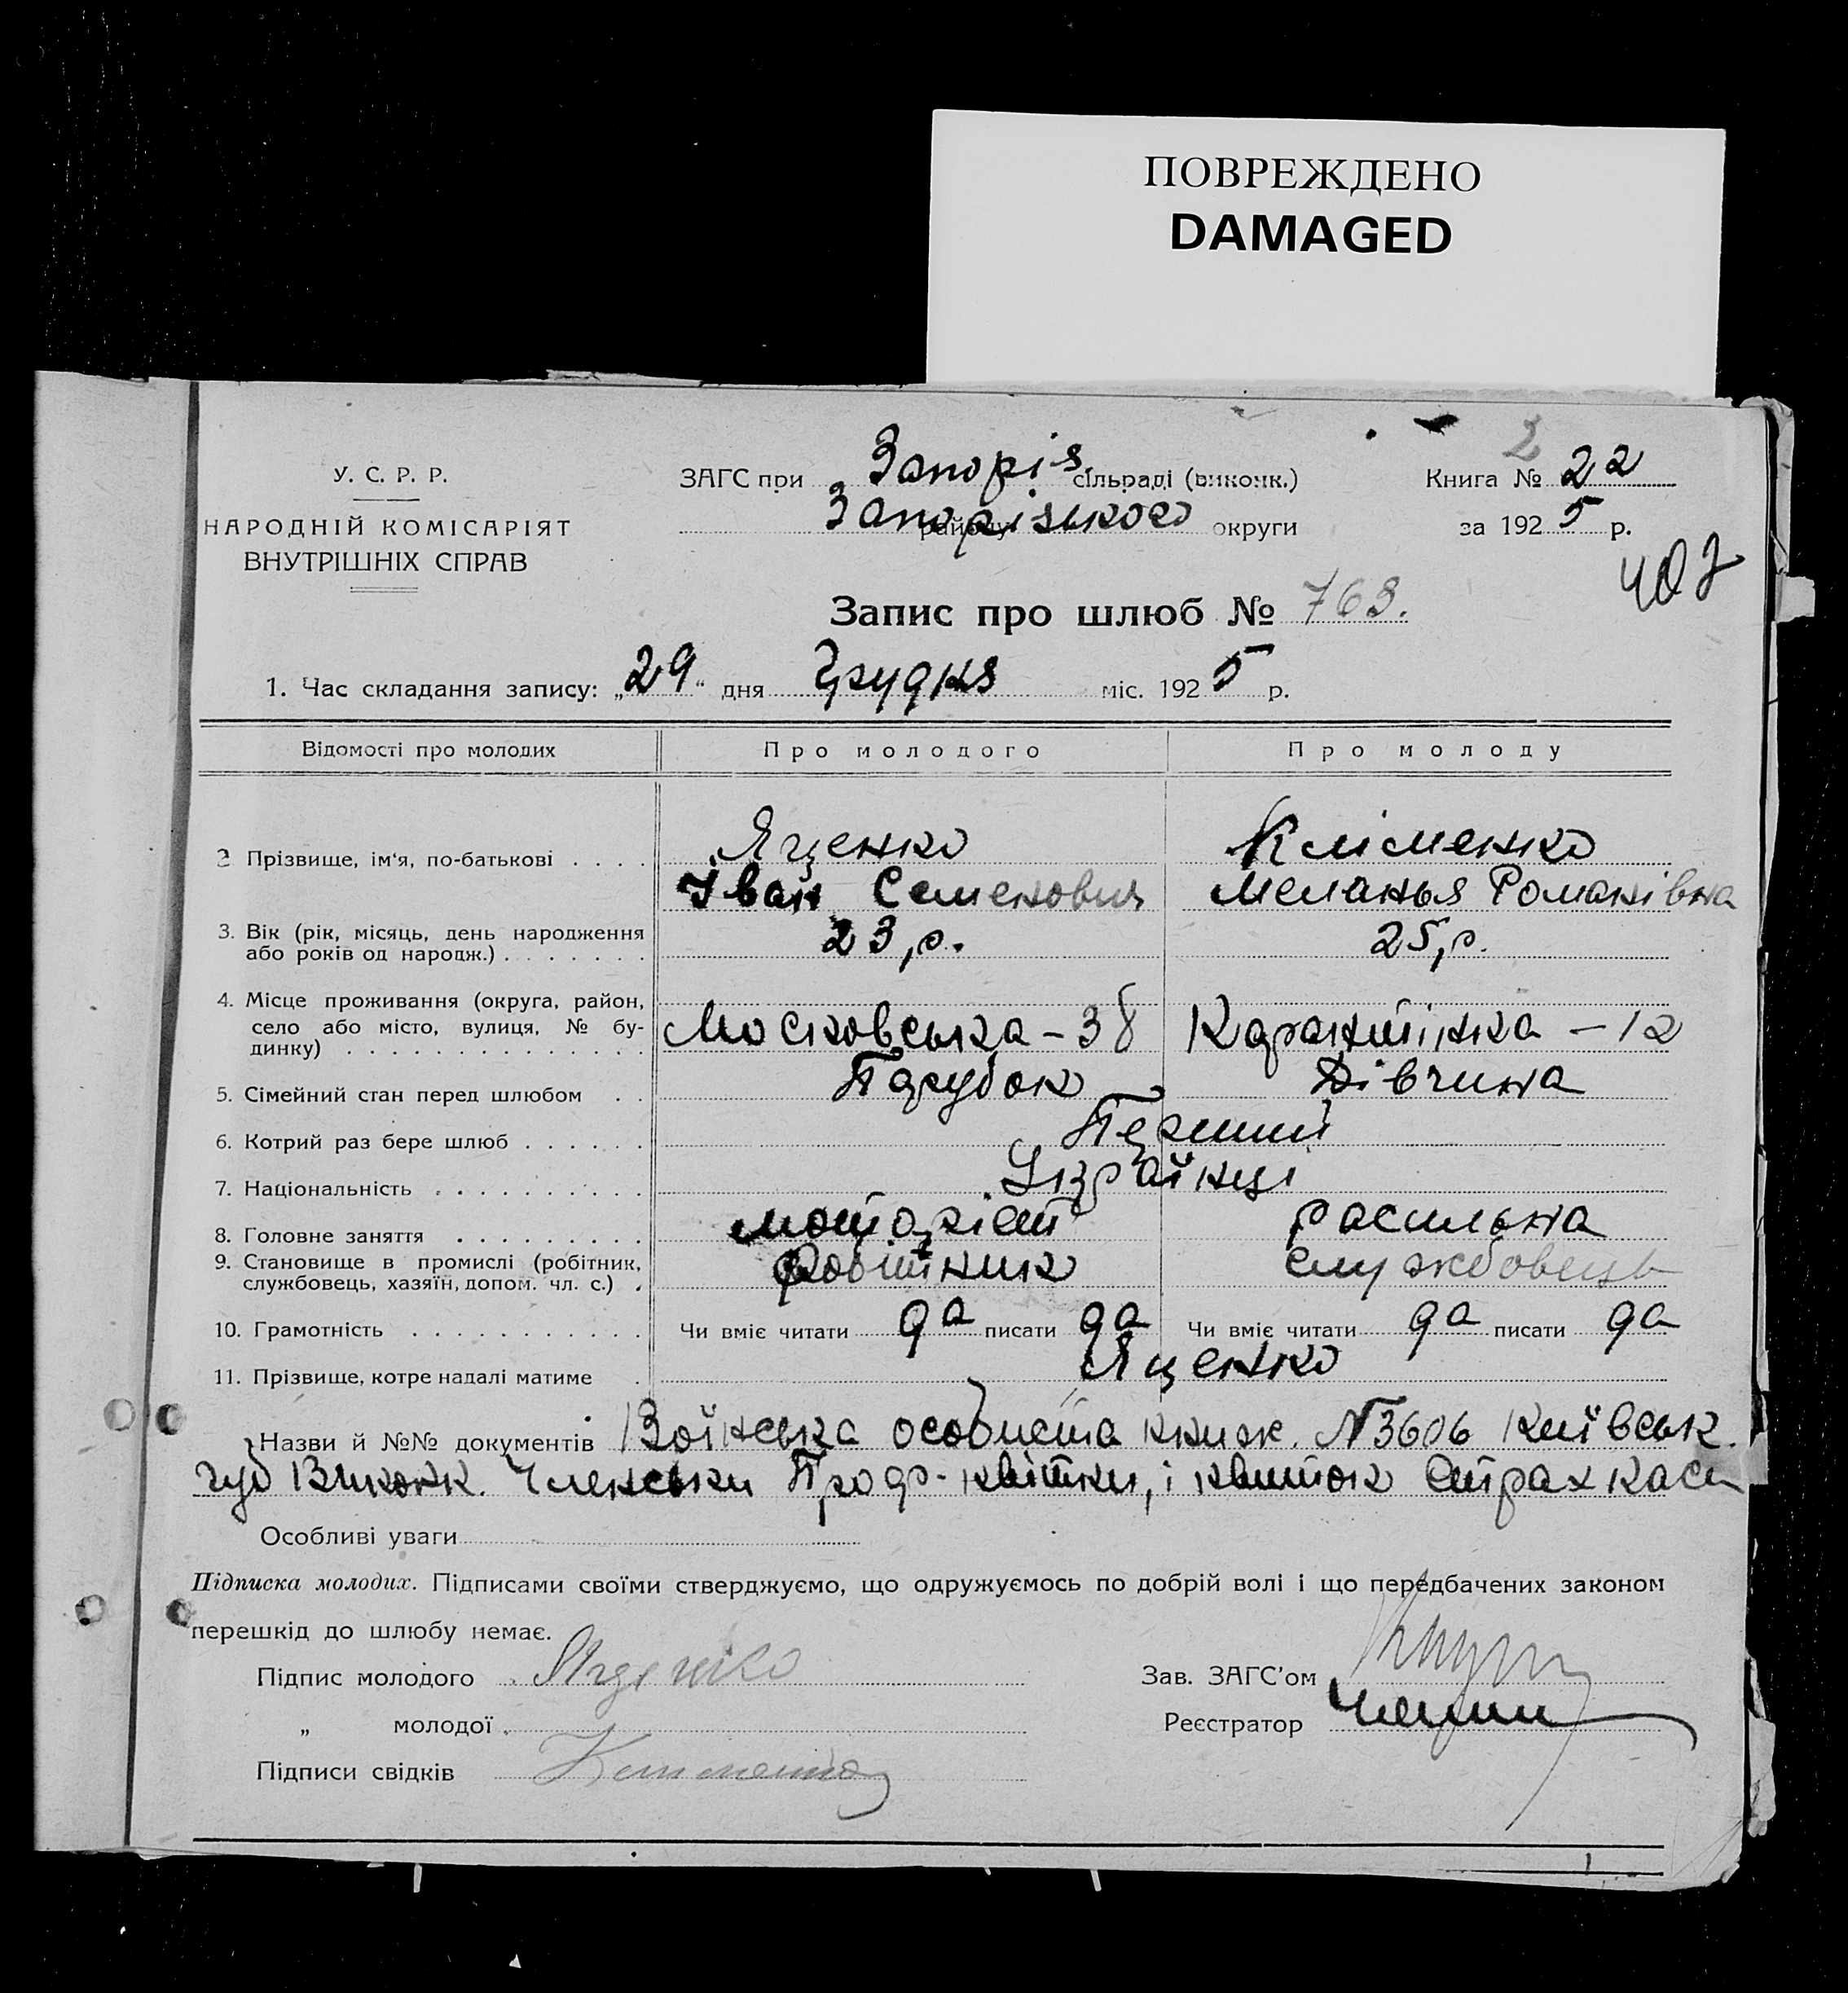 ПОВРЕЖДЕНО
DAMAGED
У. С. Р. Р.
НАРОДНІЙ КОМІСАРІЯТ
ВНУТРІШНІХ СПРАВ
ЗАГС при Запоріз. сільраді (виконк.)
району Запорізького округи
2
Книга № 22
за 1925 р.
Запис про шлюб № 763.
1. Час складання запису: „29“ дня Грудня міс. 1925 р.
Відомості про молодих Про молодого Про молоду
2 Прізвище, ім'я, по-батькові . . . . Яценко Кліменко
Іван Семенович Меланья Романівна
3. Вік (рік, місяць, день народження 23, р. 25, р.
або років од народж.) . . . . . . .
4. Місце проживання (округа, район,
село або місто, вулиця, № бу- Московська - 38 Карантінка - 12
динку) . . . . . . . . . . . . . .
5. Сімейний стан перед шлюбом . . Парубок Дівчина
6. Котрий раз бере шлюб . . . . . . Перший
7. Національність . . . . . . . . . . Українці
8. Головне заняття . . . . . . . . .
9. Становище в промислі (робітник, Робітник Службовець
службовець, хазяїн, допом. чл. с.) .
10. Грамотність . . . . . . . . . . . Чи вміє читати да писати да Чи вміє читати да писати да
11. Прізвище, котре надалі матиме . Яценко
Назви й №№ документів Воїнська особиста книж. №3606 Київськ.
губ Виконк. Членськи Проф-квітки, і квиток Страх каси
Особливі уваги
Підписка молодих. Підписами своїми стверджуємо, що одружуємось по добрій волі і що передбачених законом
перешкід до шлюбу немає.
Підпис молодого Яценко
„ молодої
Підписи свідків Клименко
Зав. ЗАГС'ом
Реєстратор